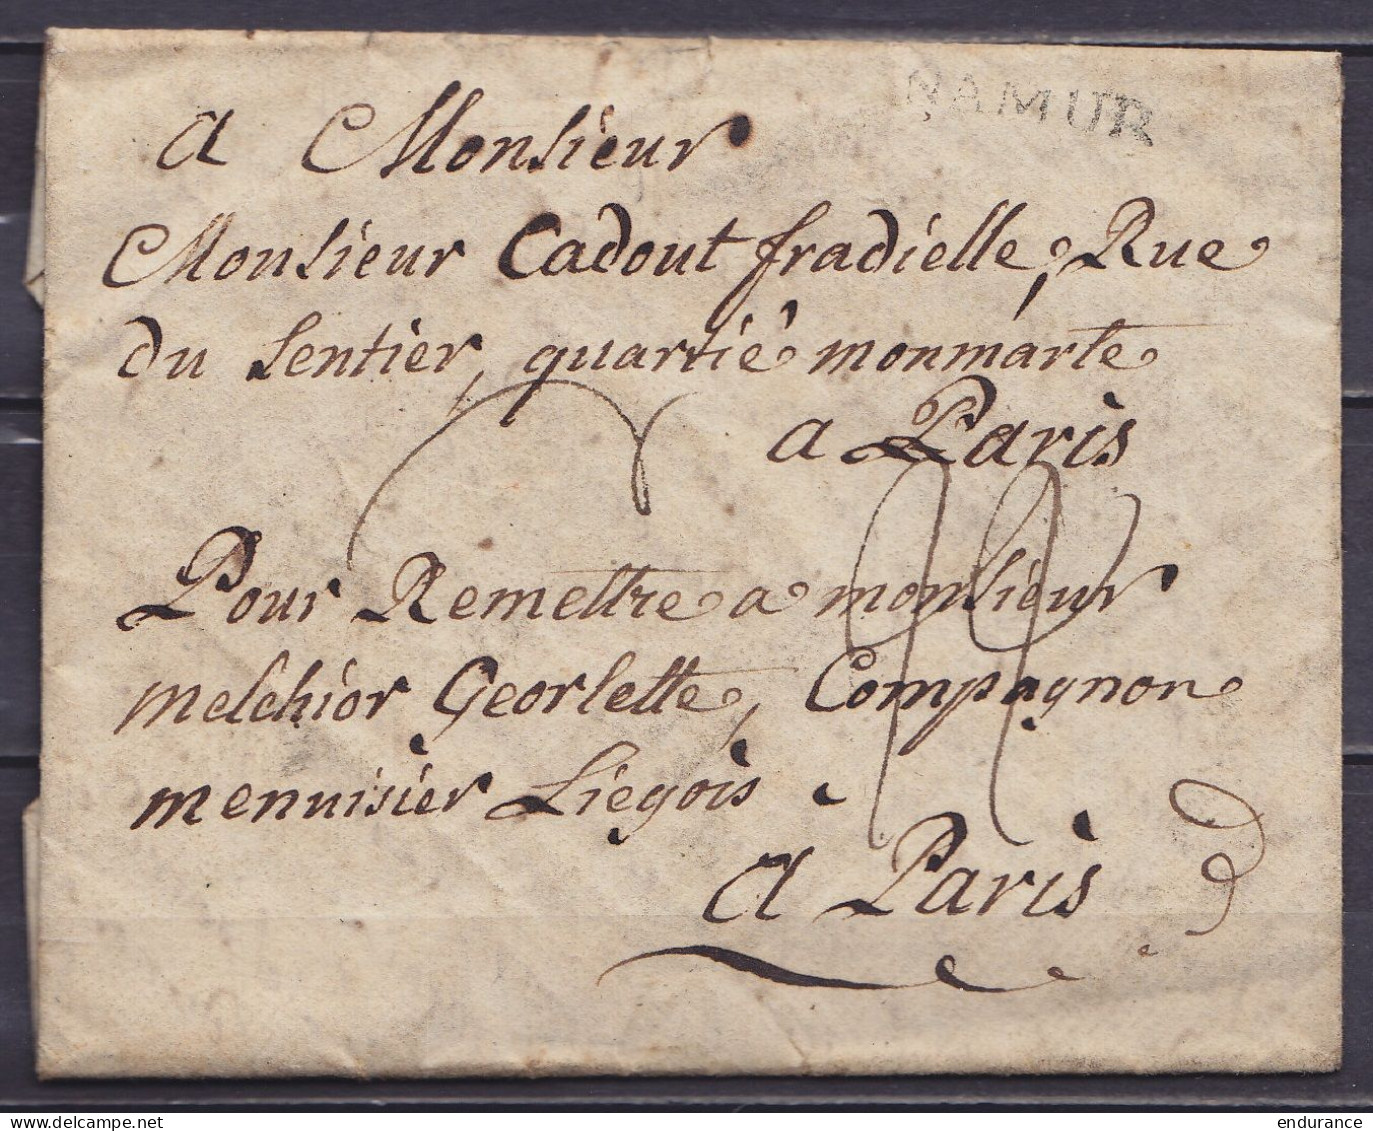 NAMUR
a Monsieur
Monsieur Cadout fradielle, Rue
du Sentier, quartié monmarte
a Paris
Pour Remettre a monsieur
melchior Georlette, Compagnon
menuisier Liegois
a Paris
delcampe.net
endurance